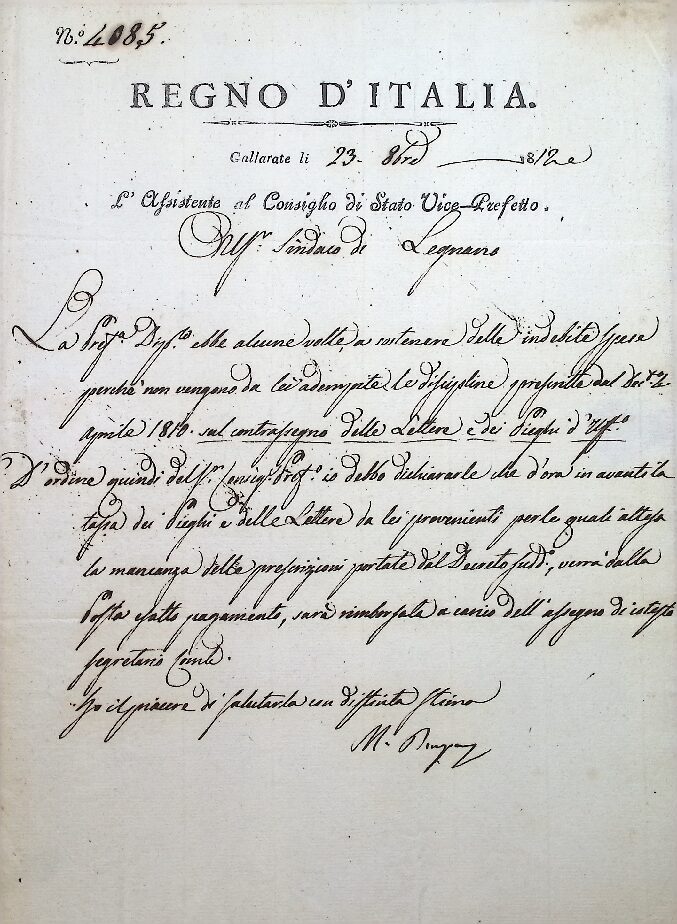 N.º 4085.
REGNO D'ITALIA.
Gallarate li 23. 8bre 1812
L' Assistente al Consiglio di Stato Vice-Prefetto.
Al Sig.r Sindaco di Legnano
La Pref.a Dip.le ebbe alcune volte, a sostenere delle indebite spese
perchè non vengono da lei adempite le discipline prescritte dal Dec.to 2
Aprile 1810. sul contrassegno delle Lettere e dei Pieghi d'Uff.o
D'ordine quindi del Sr. Consig.r Pref.o io debbo dichiararle che d'ora in avanti la
tassa dei Pieghi e delle Lettere da lei provenienti per le quali attesa
la mancanza delle prescrizioni portate dal Decreto sudd.o, verrà dalla
Posta esatto pagamento, sarà rimborsata a carico dell'assegno di
segretario
Ho il piacere di salutarla con distinta stima
M.